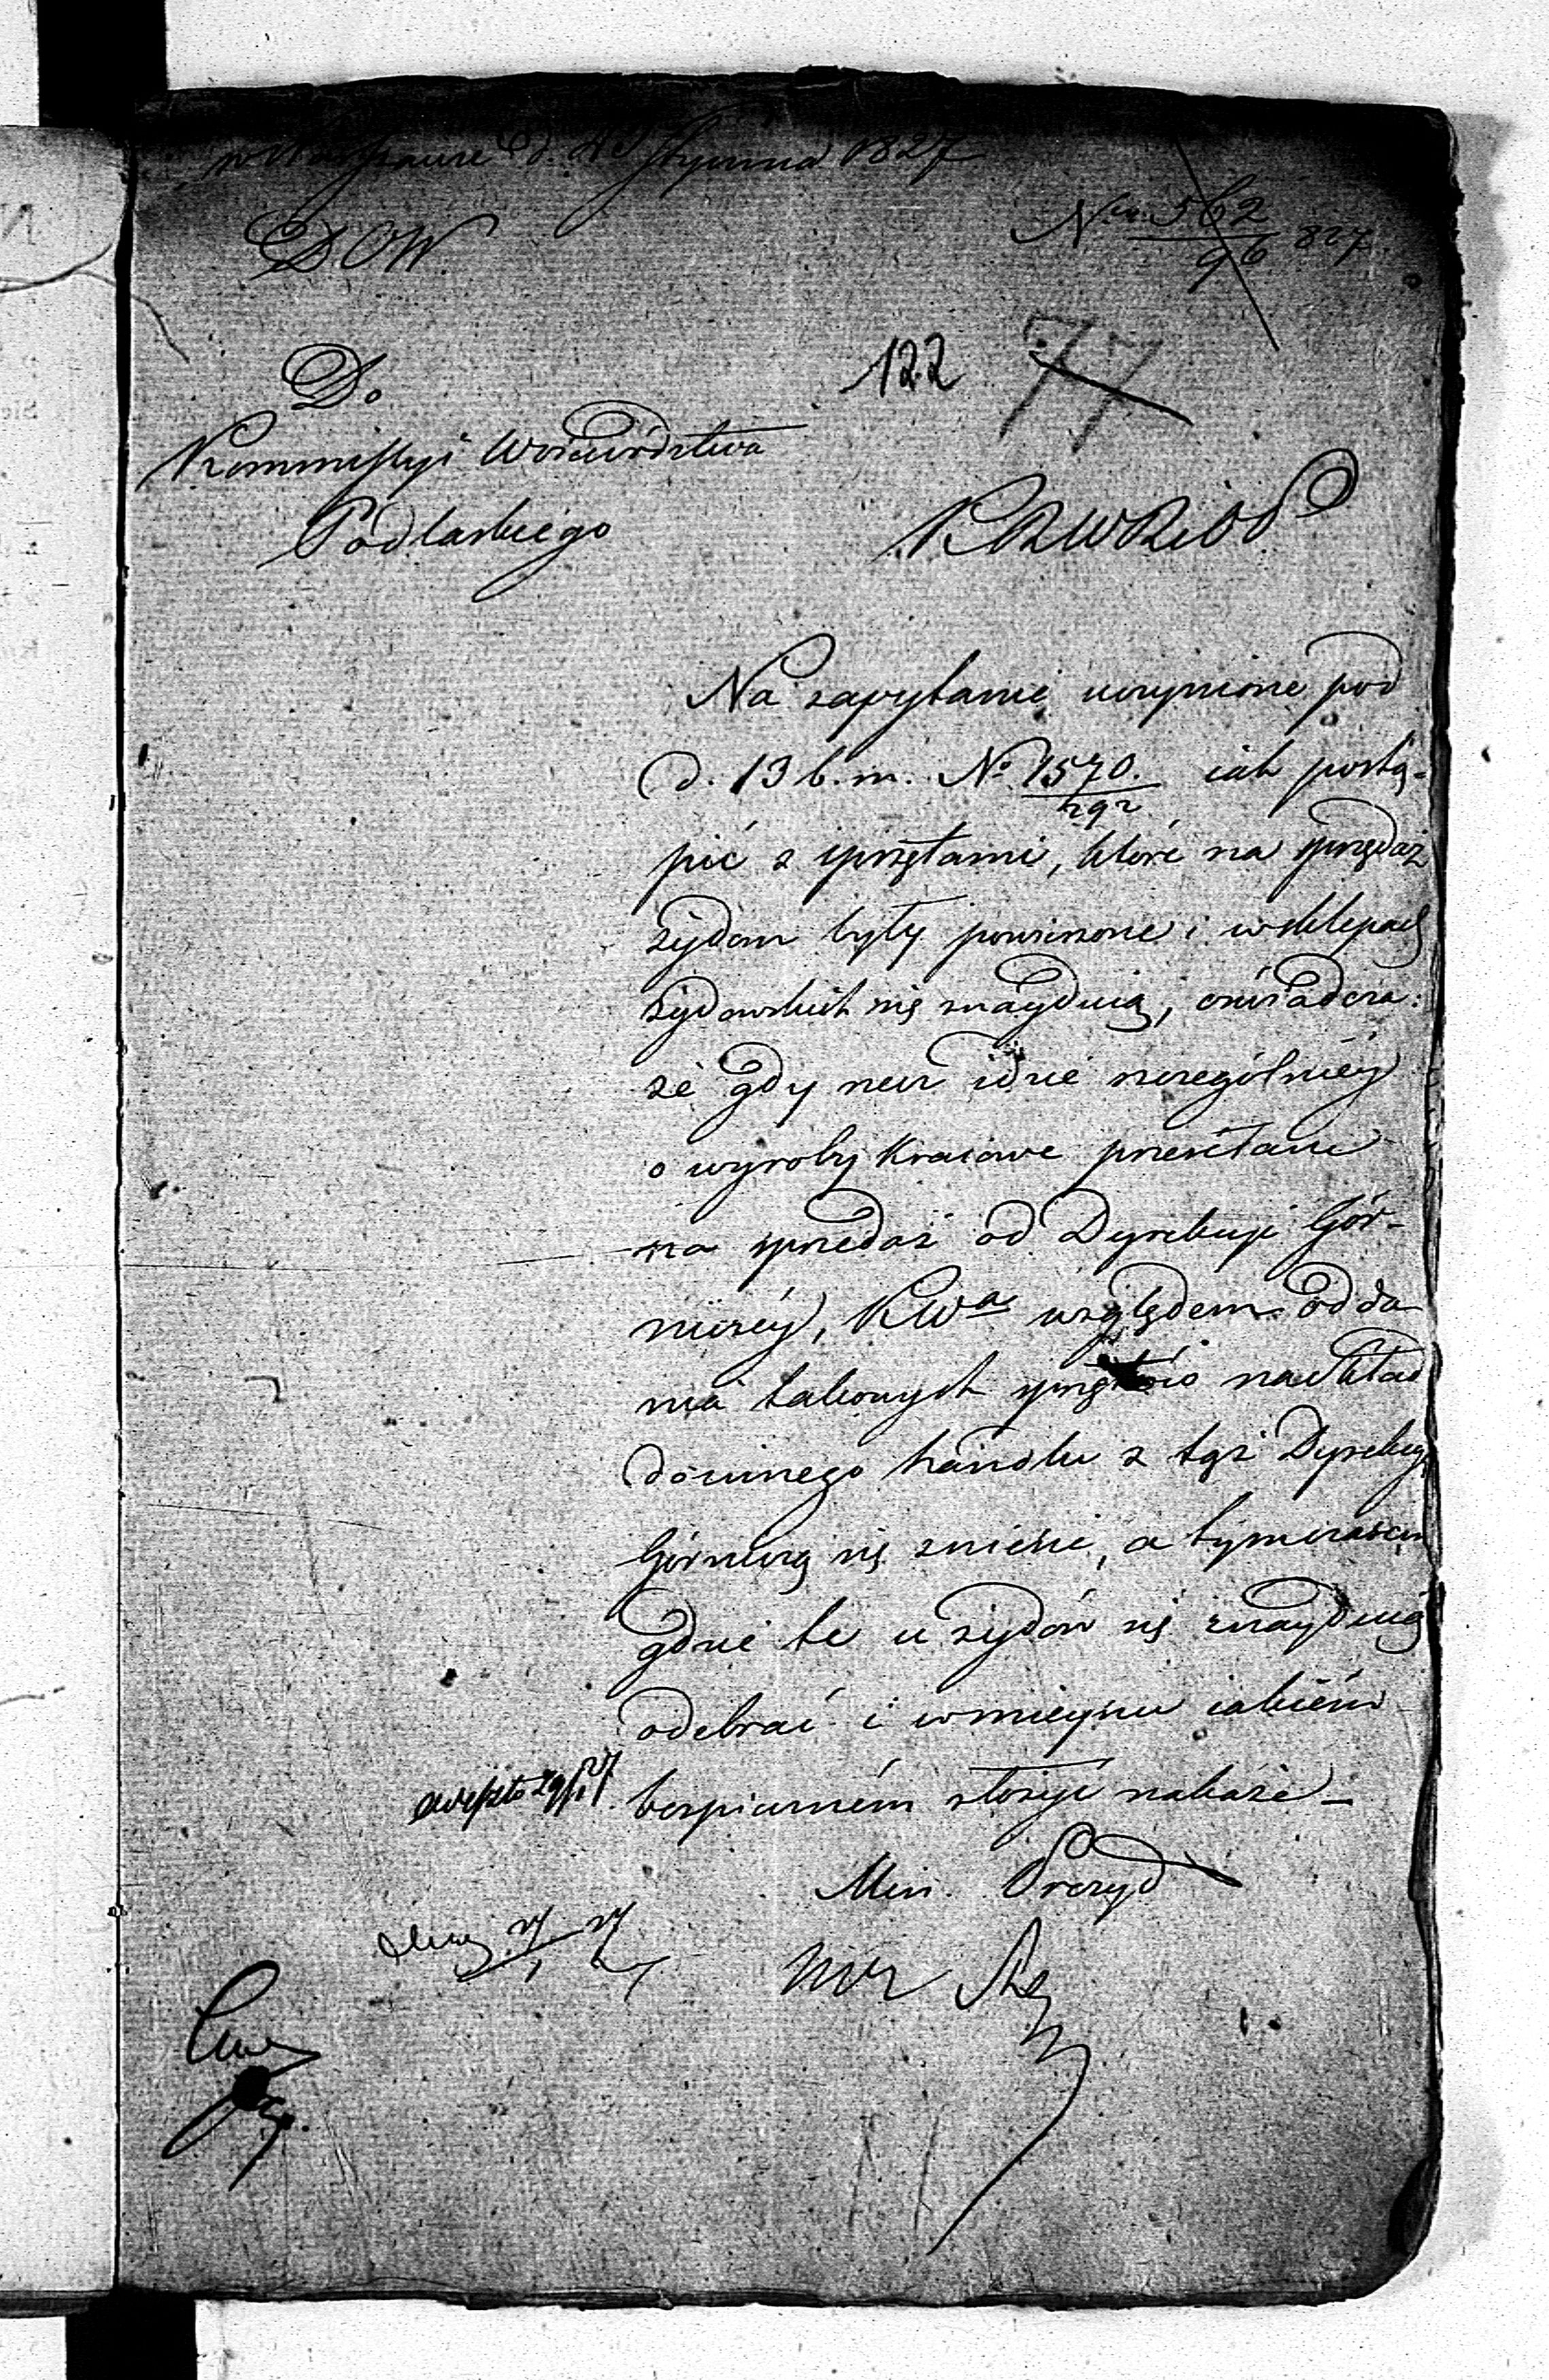 w Warszawie d. Stycznia 1827
DOW
Nro 562/96 827
122 77
Do
Kommissyi Woiewództwa
Podlaskiego
KRWRiOP
Na zapytanie uczynione pod
d. 13 b. m. No 1570. iak postą-
pić z sprzętami, które na sprzedaż
żydom były powierzone i w sklepach
żydowskich się znayduią, oświadcza:
że gdy rzecz idzie szczególniéy
o wyroby kraiowe przesłane
na sprzedaż od Dyrekcyi Gór-
niczéy, KWa względem odda
nia takowych sprzętów na skład
do innego handlu z tąż Dyrekcyą
Górniczą się zniesie, a tymczasem
gdzie te u żydów się znayduią
odebrać i w mieyscu iakiém
bezpieczném złożyć nakaże –
Min. Prezyd